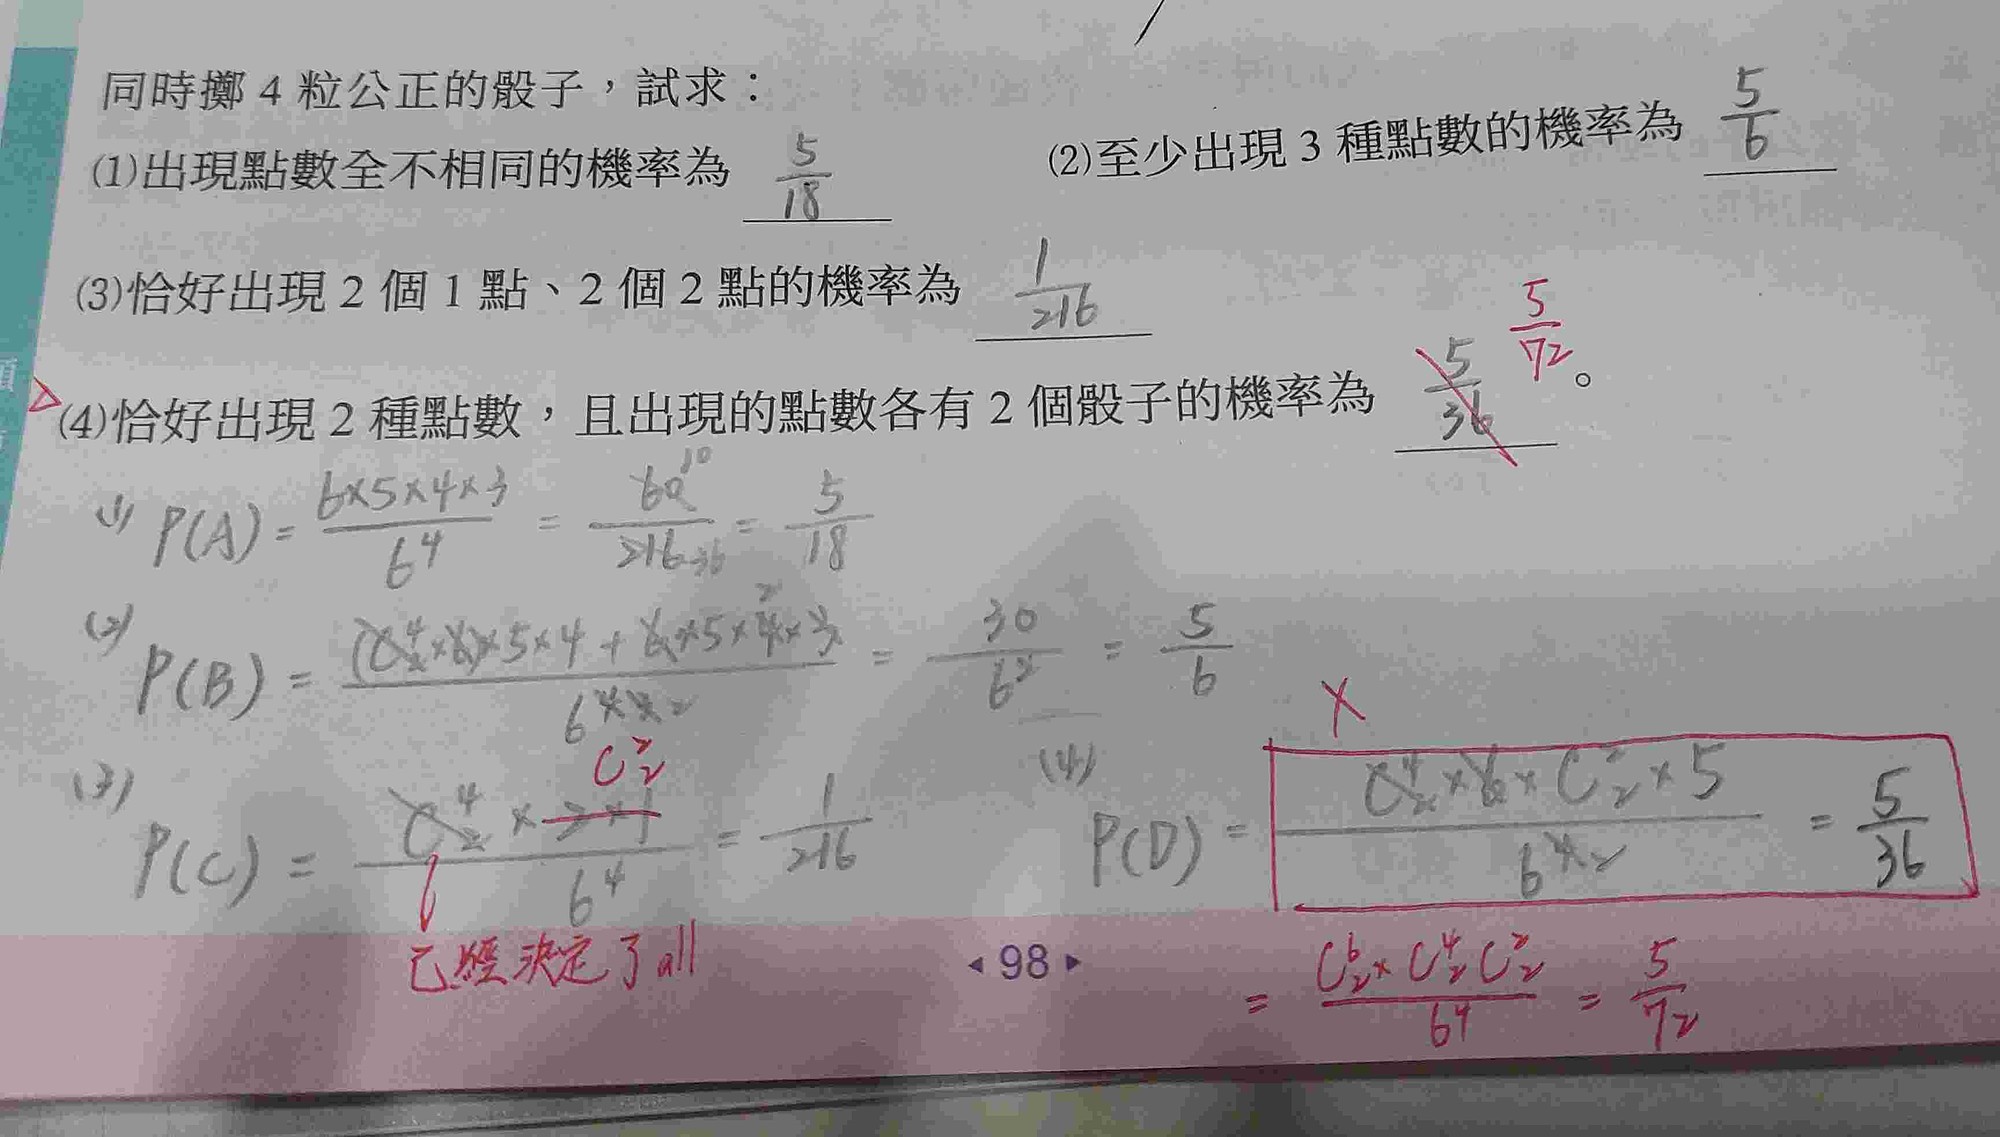 同時擲 4 粒公正的骰子，試求：
(1)出現點數全不相同的機率為 5/18
(2)至少出現 3 種點數的機率為 5/6
(3)恰好出現 2 個 1 點、2 個 2 點的機率為 1/216
(4)恰好出現 2 種點數，且出現的點數各有 2 個骰子的機率為 5/36 5/72 。
(1) P(A) = 6×5×4×3 / 6^4 = 60 10 / 216 36 = 5/18
(2) P(B) = (C^4_2×6)×5×4 + 6×5×4×3 / 6^4 = 30/6^2 = 5/6
(3) P(C) = C^4_2 × 2×1 C^2_2 / 6^4 = 1/216
已經決定了all
(4) P(D) = C^4_2×6×C^2_2×5 / 6^4 = 5/36
×
= C^6_2 × C^4_2 C^2_2 / 6^4 = 5/72
◂ 98 ▸